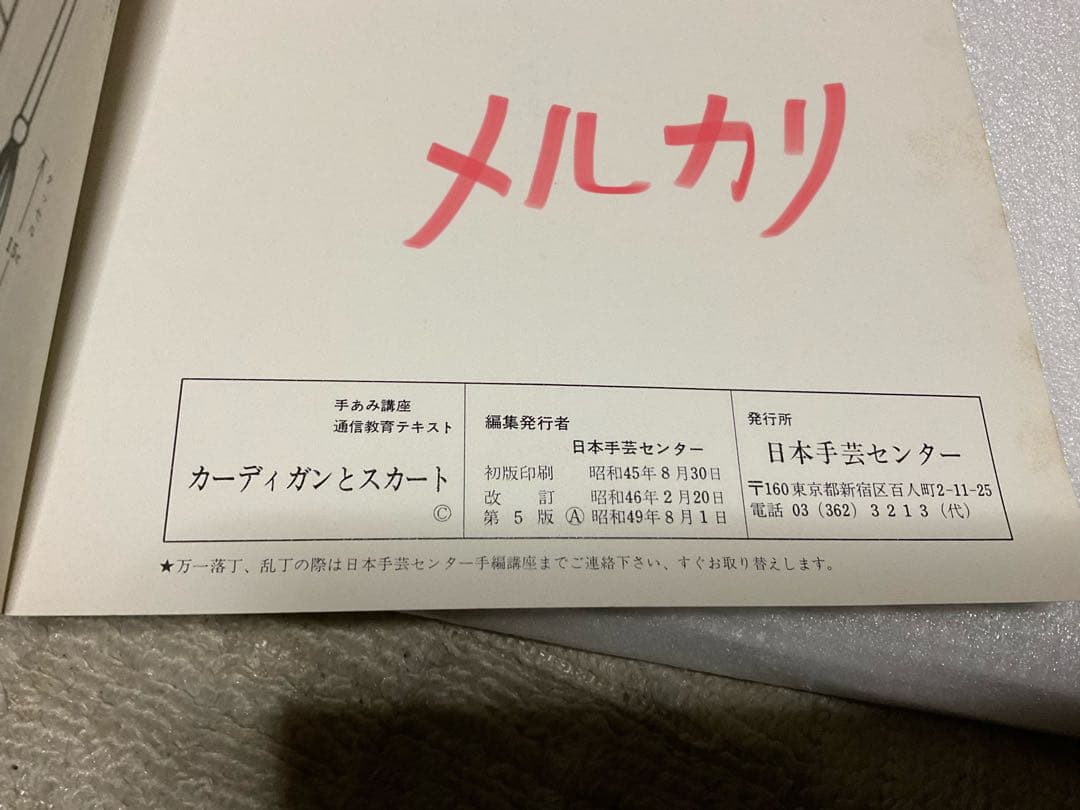 メルカリ
手あみ講座
通信教育テキスト
カーディガンとスカート
©
編集発行者
日本手芸センター
初版印刷 昭和45年8月30日
改訂 昭和46年2月20日
第5版 Ⓐ 昭和49年8月1日
発行所
日本手芸センター
〒160東京都新宿区百人町2-11-25
電話 03 (362) 3213 (代)
★万一落丁、乱丁の際は日本手芸センター手編講座までご連絡下さい、すぐお取り替えします。